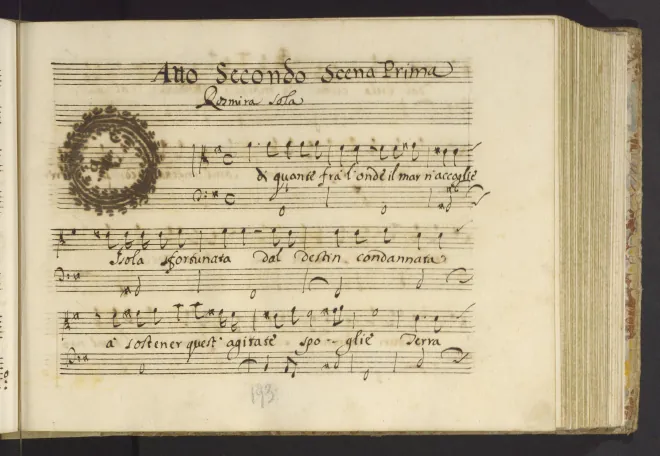 Atto Secondo Scena Prima
Rosmira sola
di quante fra l'onde il mar n'accoglie
Isola sfortunata dal destin condannata
a sostener quest' agitate spo - glie Terra
193